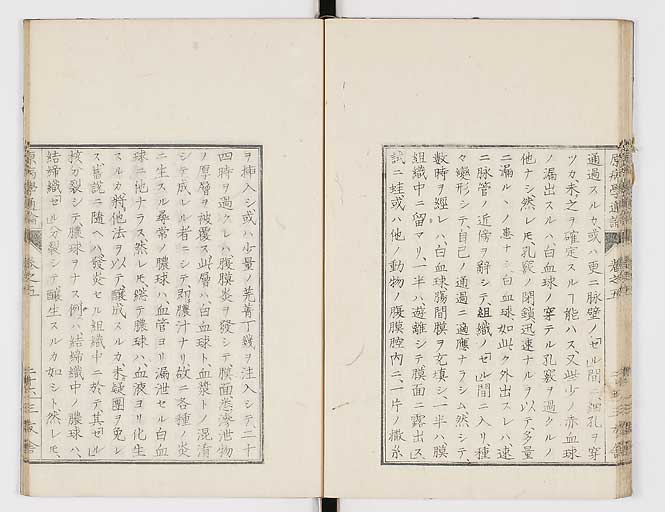 原病學通論 卷之五 三友舍
通過スルカ或ハ更ニ脉壁ノ「セルル」間ニ細孔ヲ穿
ツカ未之ヲ確定スルヿ能ハス又些少ノ赤血球
ノ漏出スルハ白血球ノ穿テル孔竅ヲ過クルノ
他ナシ然レ𪜈孔竅ノ閉鎖迅速ナルヲ以テ多量
ニ漏ルヽノ患ナシ白血球如此ク外出スレハ速
ニ脉管ノ近傍ヲ辭シテ組織ノ「セルル」間ニ入リ種
々變形シテ自己ノ通過ニ適應ナラシム然シテ
數時ヲ經レハ白血球腸間膜ヲ充填シ一半ハ膜
組織中ニ留マリ一半ハ遊離シテ膜面ニ露出ス
試ニ蛙或ハ他ノ動物ノ腹膜腔内ニ一片ノ撒糸
ヲ挿入シ或ハ少量ノ芫菁丁幾ヲ注入シテ二十
四時ヲ過クレハ腹膜炎ヲ發シテ膜面滲泄物
ノ厚層ヲ被覆ス此層ハ白血球ト血漿トノ混淆
シテ成レル者ニシテ即膿汁ナリ故ニ各種ノ炎
ニ生スル尋常ノ膿球ハ血管ヨリ漏泄セル白血
球ニ他ナラス然レ𪜈總テ膿球ハ血液ヨリ化生
スルカ將他法ヲ以テ醸成スルカ未疑團ヲ免レ
ス舊説ニ隨ヘハ發炎セル組織中ニ於テ其「セルル」
核分裂シテ膿球ヲナス例ハ結締織中ノ膿球ハ
結締織「セルル」分裂シテ醸生スルカ如シト然レ𪜈
原病學通論 卷之五 二十六 三友舍